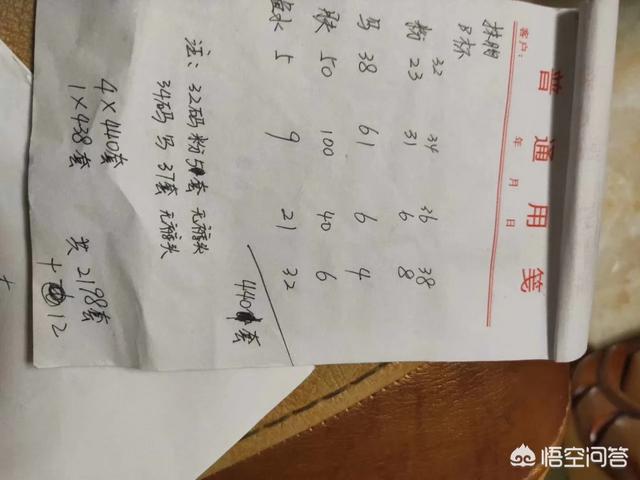 普通用笺
客户： 年 月 日
抹胸
B杯
32 34 36 38
粉 23 31 6 8
马 38 61 6 4
肤 50 100 40 6
5 9 21 32
440套
注：32码粉 套 无裤头
34码 马 37套 无裤头
4×440套
1×438套 共2198套
+ 12
悟空问答